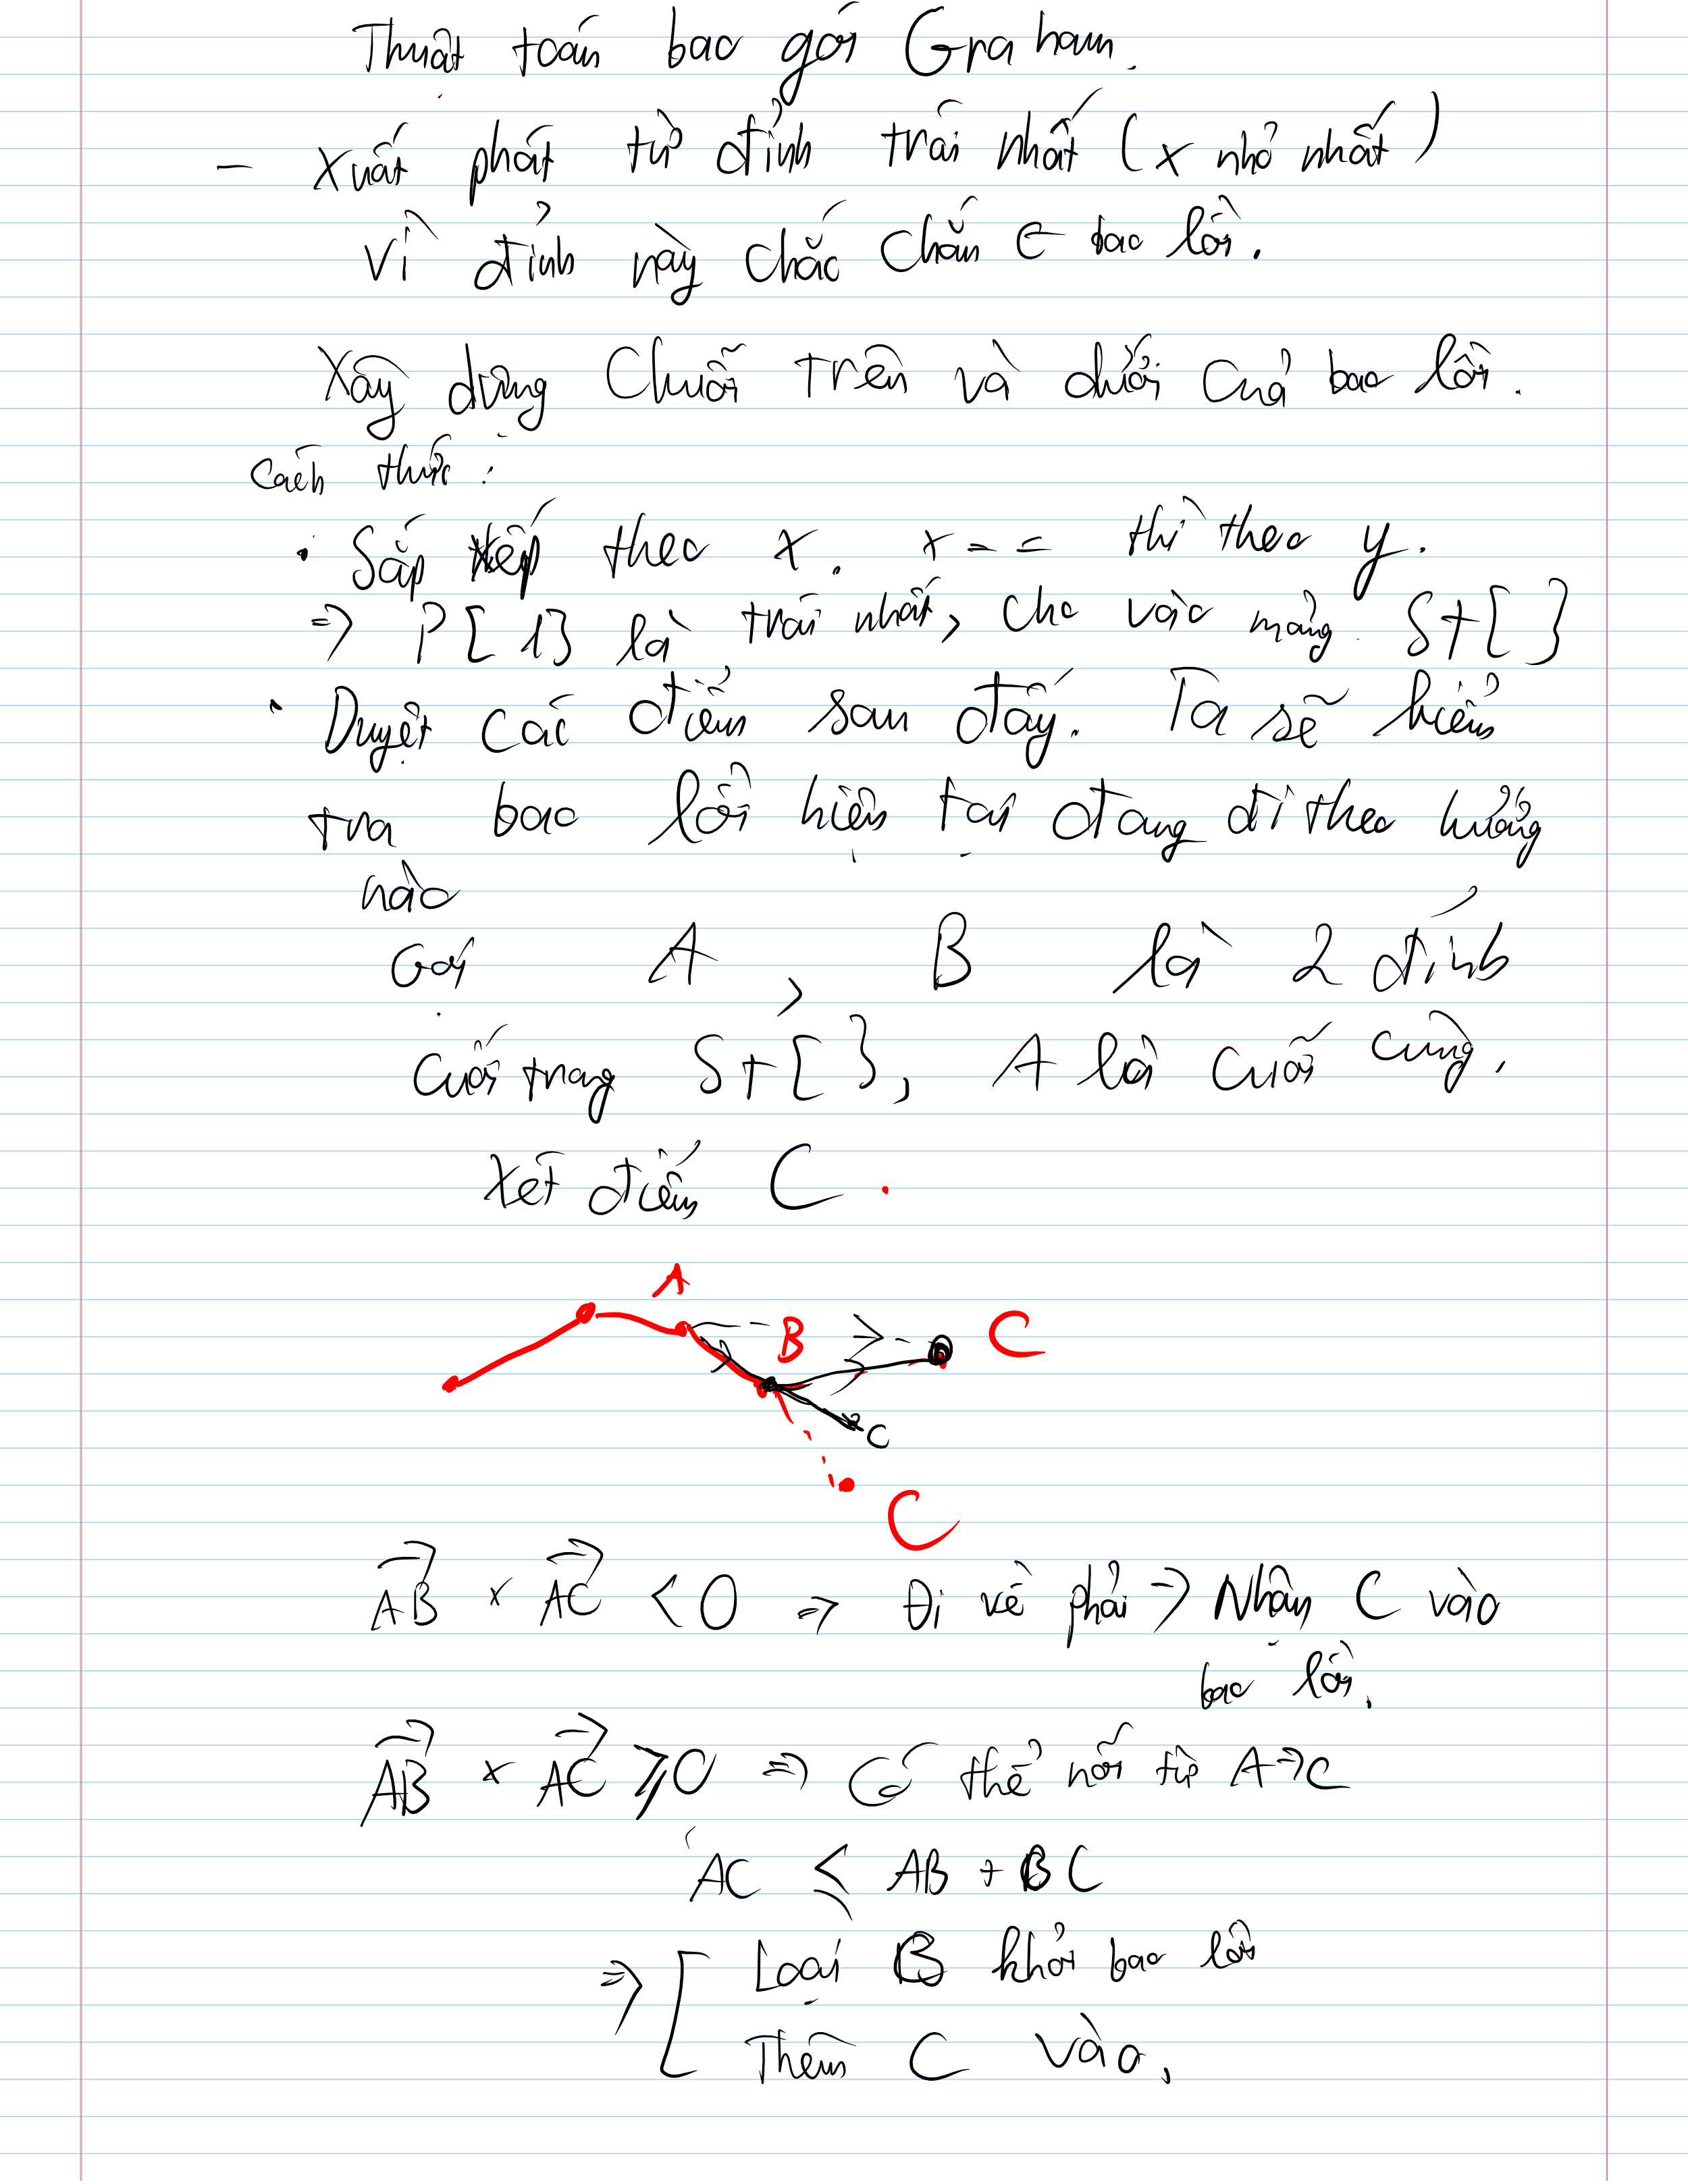 Thuật toán bao gói Graham.
- Xuất phát từ đỉnh trái nhất (x nhỏ nhất)
Vì đỉnh này chắc chắn ∈ bao lồi.
Xây dựng Chuỗi Trên và dưới của bao lồi.
Cách thức :
• Sắp xếp theo x. x == thì theo y.
=> P[1] là trái nhất, cho vào mảng St[]
• Duyệt các điểm sau đấy. Ta sẽ kiểm
tra bao lồi hiện tại đang đi theo hướng
nào
Gọi A, B là 2 đỉnh
Cuối trong St[], A là Cuối cùng.
Xét điểm C.
A
B
C
C
C
AB × AC < 0 => Đi về phải => Nhận C vào
bao lồi.
AB × AC ⩾ 0 => Có thể nối từ A → C
AC ≤ AB + BC
=> [ Loại B khỏi bao lồi
Thêm C vào.